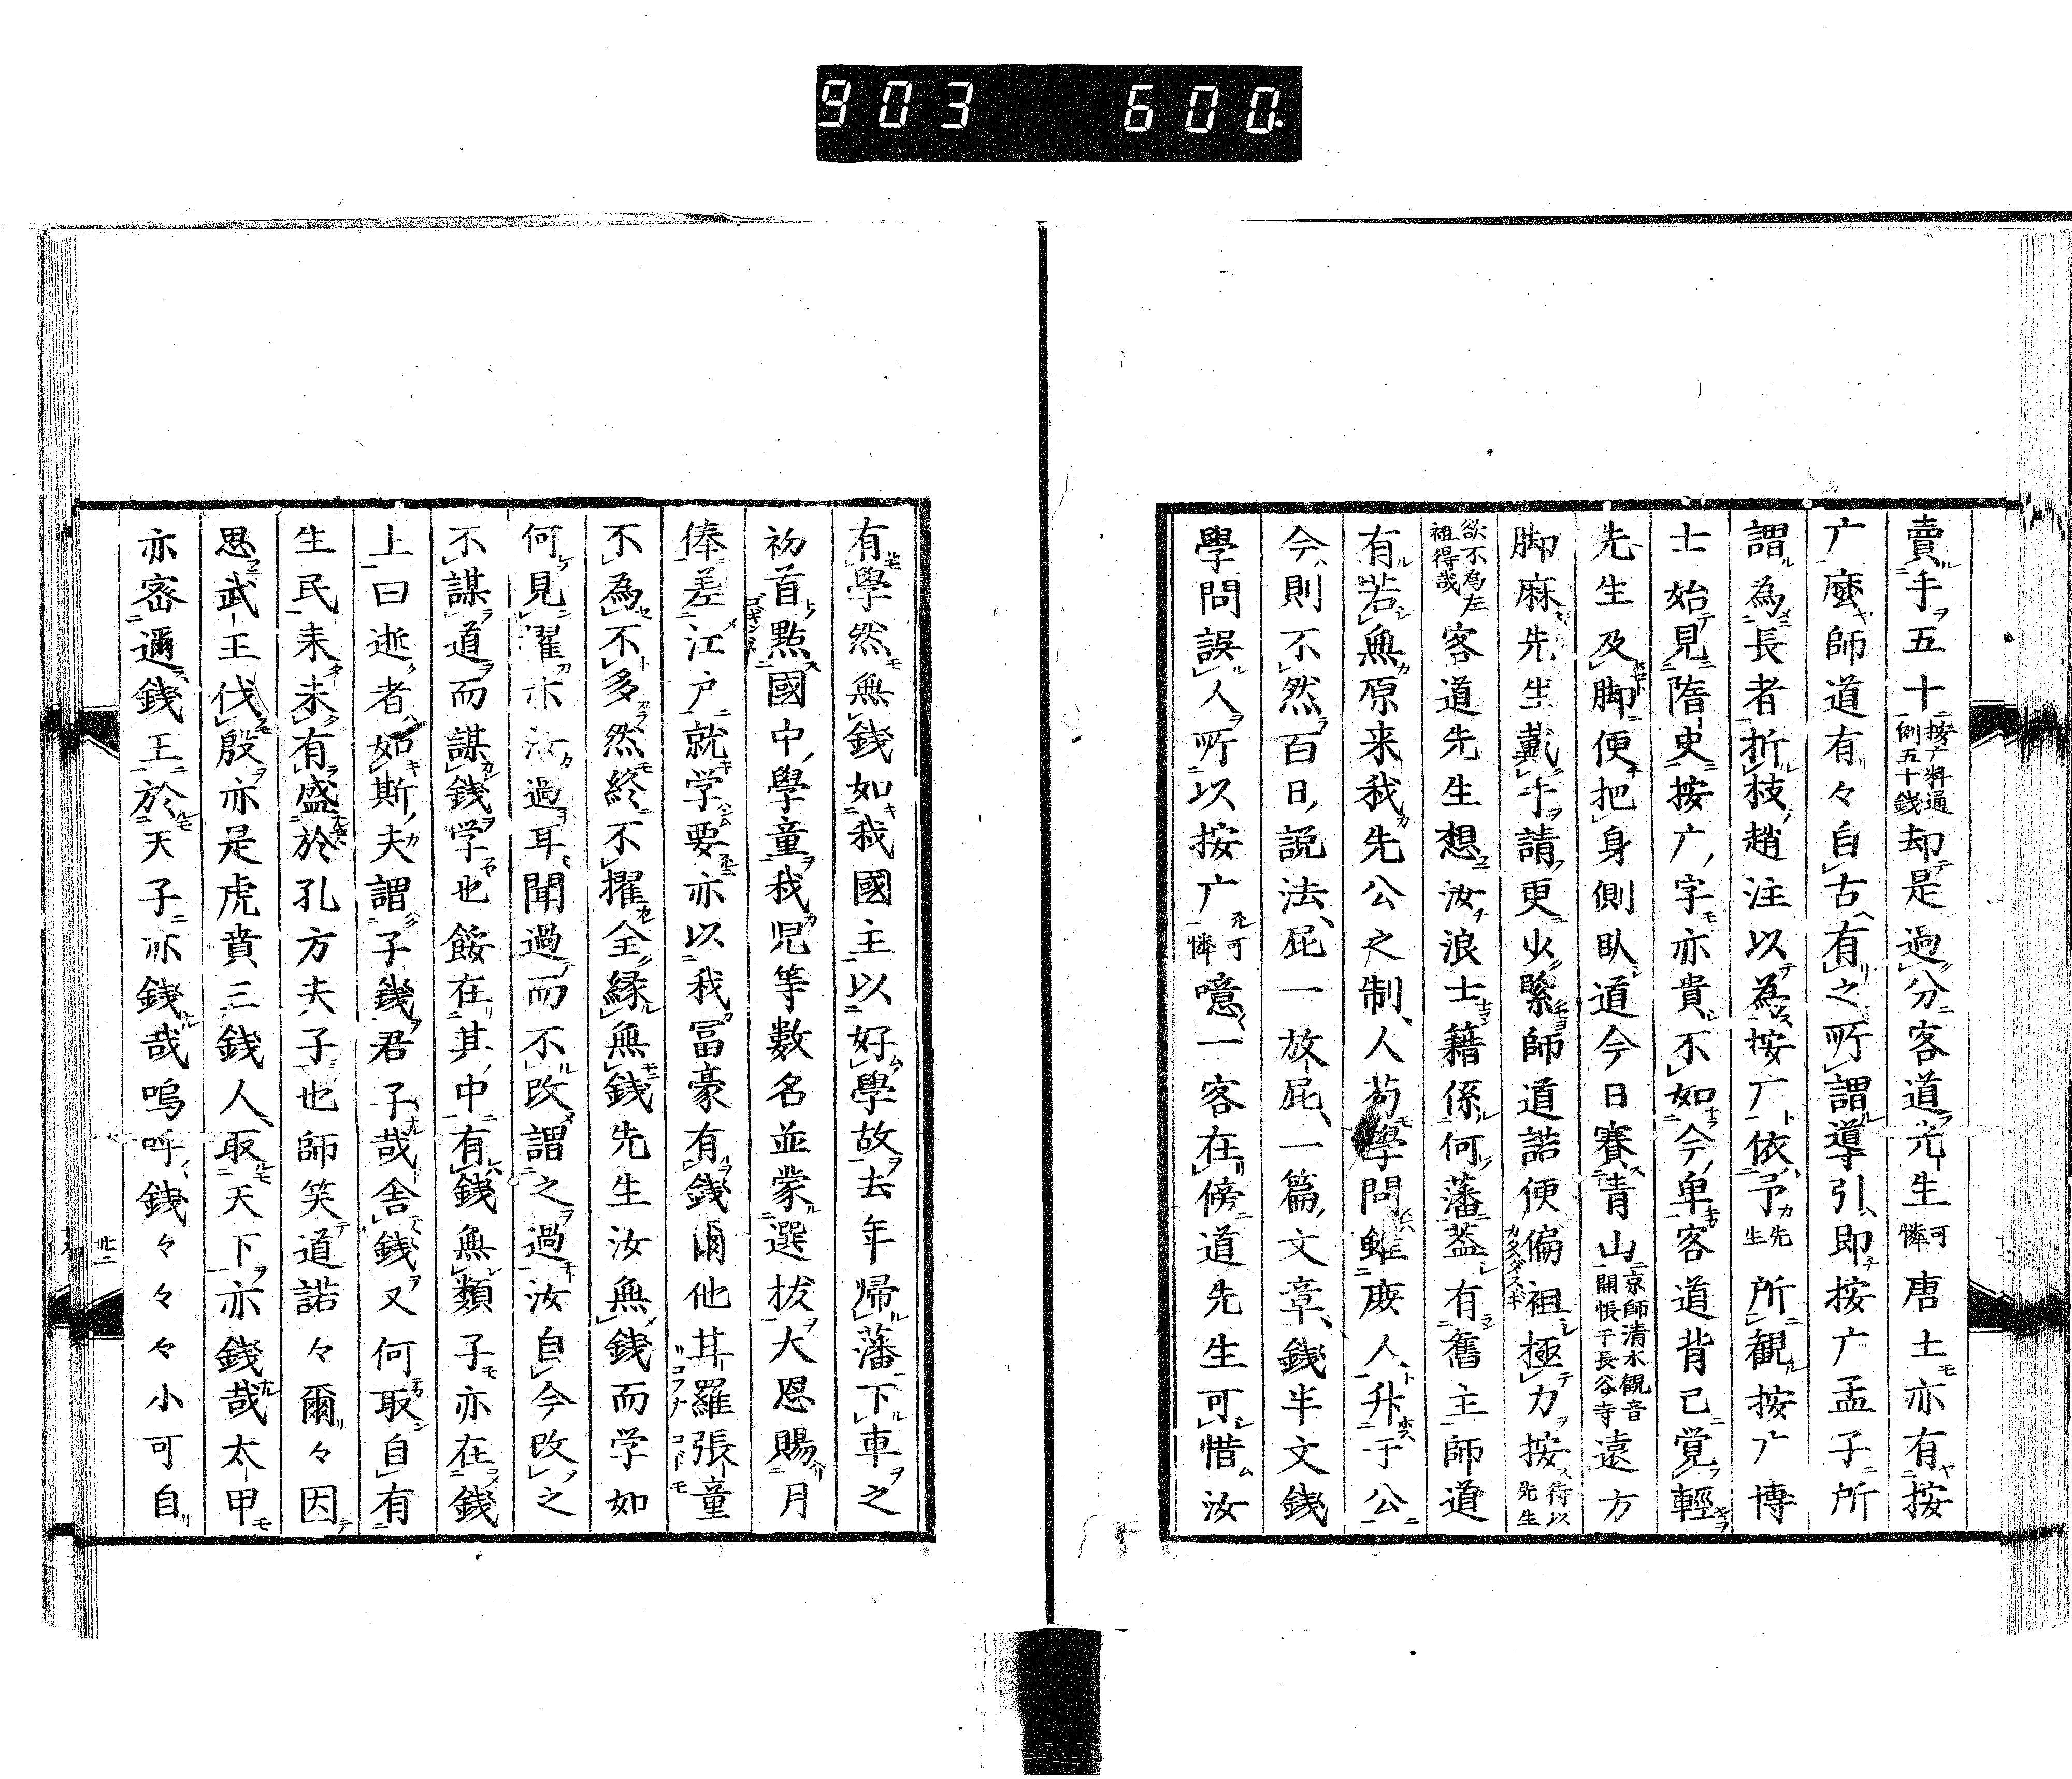 903 600.
賣手五十按广料通例五十銭却是過分客道先生可憐唐土亦有按
广麼師道有々自古有之所謂導引即按广孟子所
謂為長者折枝趙注以為按广依予先生所観按广博
士始見隋史按广字亦貴不如今卑客道背已覚輕
先生及脚便把身側臥道今日賽青山京師清水観音開帳于長谷寺遠方
脚麻先生戴手請更少緊師道諾便偏袒極力按待以先生
欲不為左袒得哉客道先生想汝浪士籍係何藩蓋有舊主師道
有若無原来我先公之制人苟學問雖庶人升于公
今則不然百日説法屁一放屁一篇文章銭半文銭
學問誤人所以按广可憐噫一客在傍道先生可惜汝
有學然無銭如我國主以好學故去年帰藩下車之
初首點國中學童我児等數名並蒙選拔大恩賜月
俸差江戸就学要亦以我冨豪有銭爾他丱羅張童
不為不多然終不擢全縁無銭先生汝無銭而学如
何見濯亦汝過耳聞過而不改謂之過汝自今改之
不謀道而謀銭学也餒在其中有銭無類子亦在銭
上曰逝者如斯夫謂子銭君子哉舎銭又何取自有
生民来未有盛於孔方夫子也師笑道諾々爾々因
思武王伐殷亦是虎賁三銭人取天下亦銭哉太甲
亦密邇銭王於天子亦銭哉嗚呼銭々々々小可自
卅二